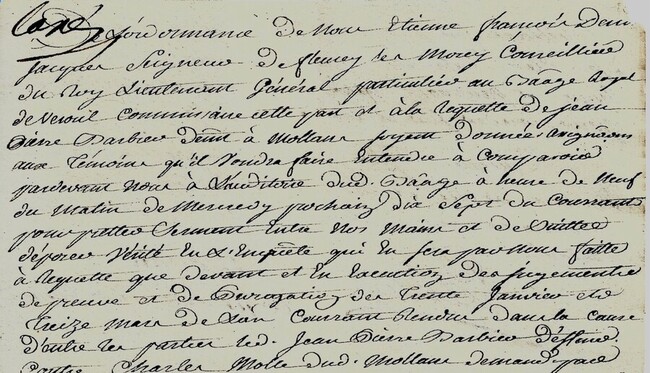 De Lordonnance de Nous Etienne françois
Jacques Seigneur de fleurey les Morey Conseillier
du Roy Lieutenant Général particulier au Baâge Royal
de Vesoul Commissaire cette part et à la Requette de jean
Pierre Barbier demt à Mollans soyent données assignations
aux temoins qu'il voudra faire Entendre à Comparoir
pardevant nous à Lauditoire dud. Baâge à heure de Neuf
du Matin de Mercredy prochain dix Sept du Courant
pour pretter Serment Entre nos mains et de Suitte
déposer Vérité En L'Enquête qui En sera par Nous faitte
à Requette que devant et En Execution des jugements
de preuve et de Surrogation des trente Janvier et
treize mars de L'an Courant Rendus dans la cause
d'entre les parties led. Jean Pierre Barbier deffend.
Contre Charles Molle dud. Mollans demand. par